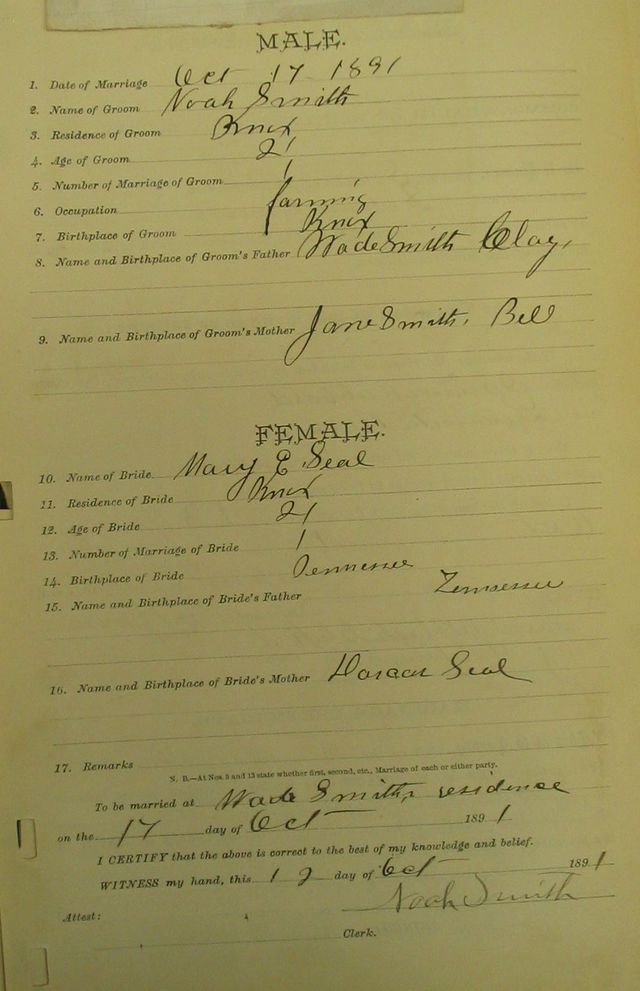 MALE.
1. Date of Marriage Oct 17 1891
2. Name of Groom Noah Smith
3. Residence of Groom Knox
4. Age of Groom 21
5. Number of Marriage of Groom 1
6. Occupation farming
7. Birthplace of Groom Knox
8. Name and Birthplace of Groom's Father Wade Smith Clay,
9. Name and Birthplace of Groom's Mother Jane Smith, Bell
FEMALE.
10. Name of Bride Mary E Seal
11. Residence of Bride Knox
12. Age of Bride 21
13. Number of Marriage of Bride 1
14. Birthplace of Bride Tennessee
15. Name and Birthplace of Bride's Father Tennessee
16. Name and Birthplace of Bride's Mother Dorcas Seal
17. Remarks
N. B.—At Nos. 5 and 13 state whether first, second, etc., Marriage of each or either party.
To be married at Wade Smith's residence
on the 17 day of Oct 1891
I CERTIFY that the above is correct to the best of my knowledge and belief.
WITNESS my hand, this 12 day of Oct 1891
Noah Smith
Attest:
Clerk.